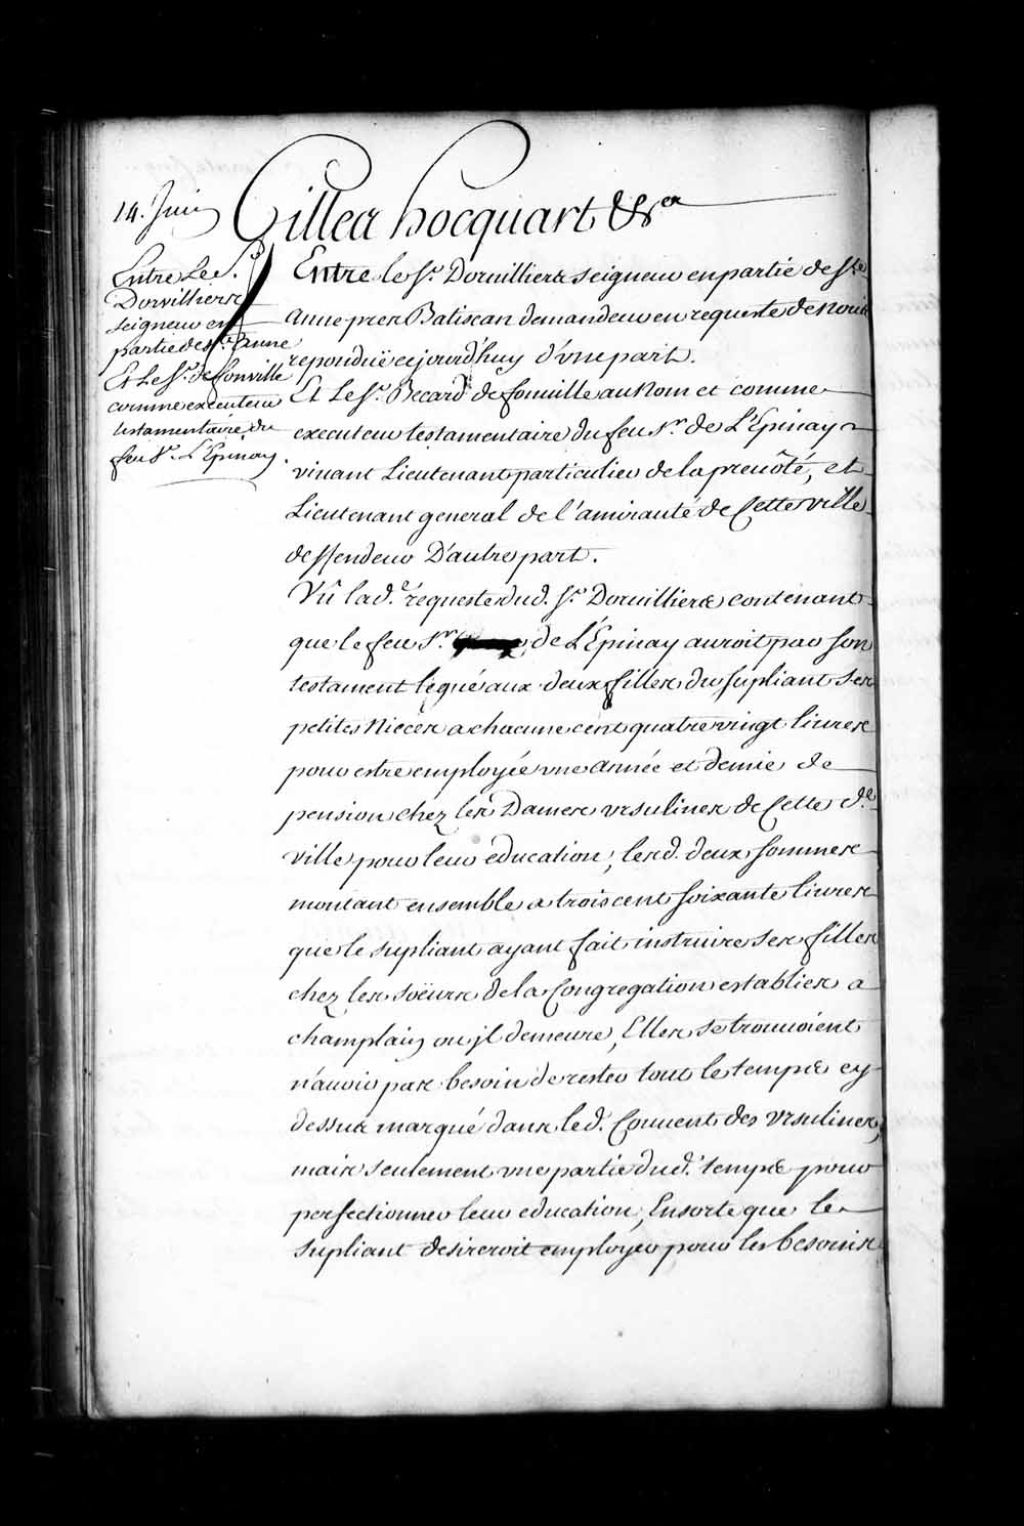 14. Juin
Gilles hocquart &.ca
Entre Le S.r
Dorvilliers
seigneur en
partie de S.te Anne
Et Le S.r de fonville
comme executeur
testamentaire du
feu S.r L'Epinay.
Entre le S.r Doruilliers seigneur en partie de S.te
Anne pres Batiscan demandeur en requeste de nous
reponduë cejourd'huy d'vne part.
Et Le S.r Becard de fonuille au Nom et comme
executeur testamentaire du feu S.r de L'Epinay
viuant Lieutenant particulier de la preuôté, et
Lieutenant general de l'amirauté de Cette ville
deffendeur D'autre part.
Vû lad.e requeste dud. S.r Doruilliers contenant
que le feu S.r de L'Épinay auroit par son
testament legué aux deux filles du supliant ses
petites Nieces a chacune cent quatre vingt liures
pour estre employée vne année et demie de
pension chez les Dames vrsulines de Cette d.e
ville pour leur education, lesd. deux sommes
montant ensemble a trois cent soixante liures
que le supliant ayant fait instruire ses filles
chez les soëurs de la Congregation establies a
champlain ou jl demeure, Elles se trouuoient
n'auoir pas besoin de rester tout le temps cy
dessus marqué dans led. Couuent des Vrsulines,
mais seulement vne partie dud. temps pour
perfectionner leur education, Ensorte que le
supliant desireroit employer pour les besoins